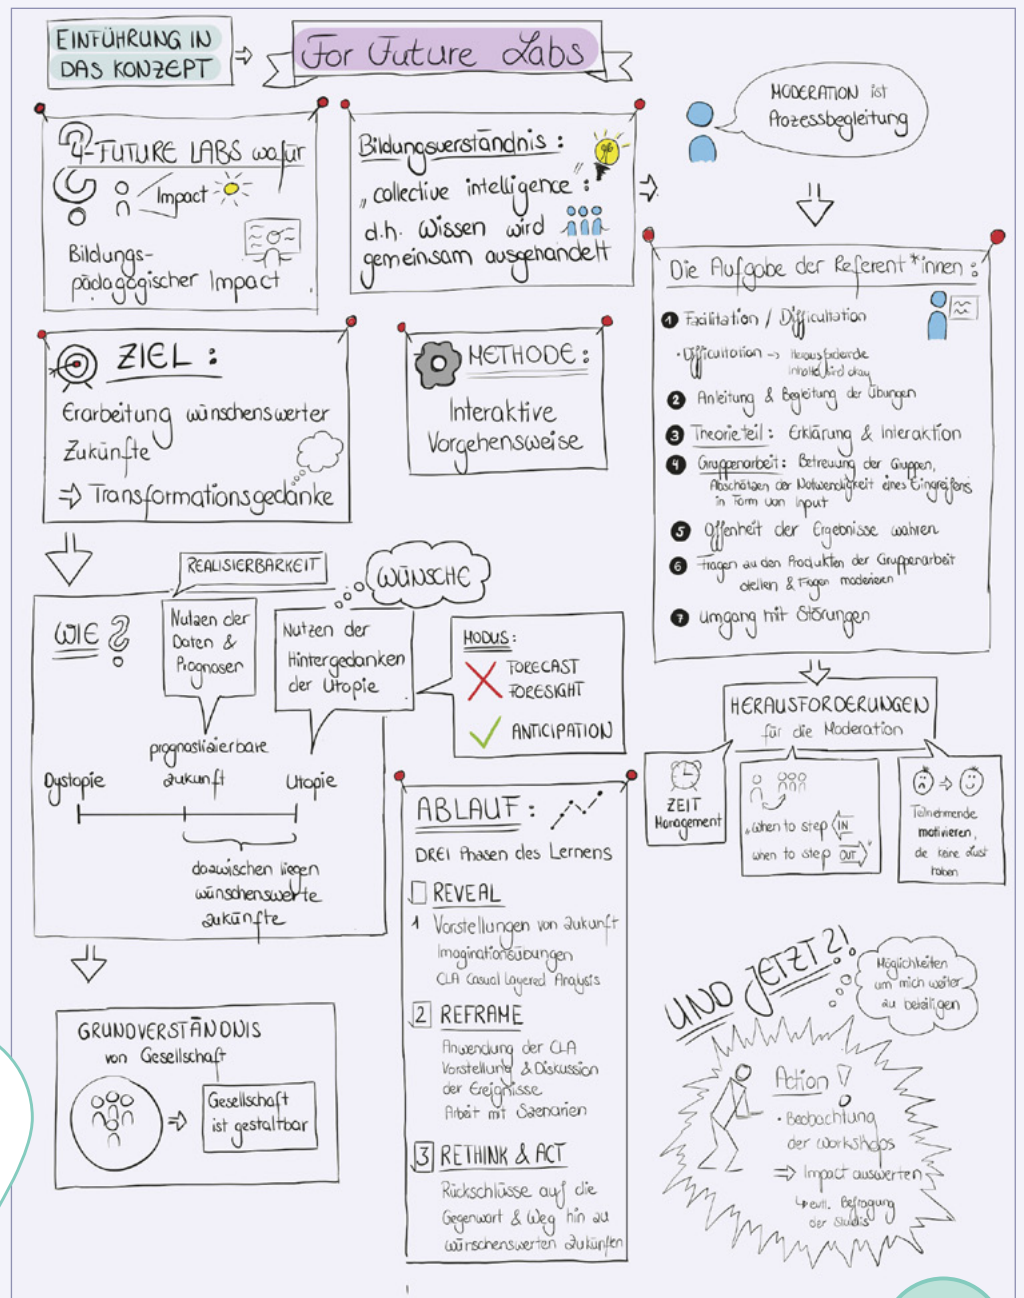 EINFÜHRUNG IN
DAS KONZEPT
For Future Labs
4-FUTURE LABS wofür
Impact
Bildungs-
pädagogischer Impact
Bildungsverständnis:
„collective intelligence":
d.h. Wissen wird
gemeinsam ausgehandelt
MODERATION ist
Prozessbegleitung
ZIEL:
Erarbeitung wünschenswerter
Zukünfte
⇒ Transformationsgedanke
METHODE:
Interaktive
Vorgehensweise
Die Aufgabe der Referent*innen:
1 Facilitation / Difficultation
• Difficultation → Herausfordernde
Inhalte wird okay
2 Anleitung & Begleitung der Übungen
3 Theorieteil: Erklärung & Interaktion
4 Gruppenarbeit: Betreuung der Gruppen,
Abschätzen der Notwendigkeit eines Eingreifens
in Form von Input
5 Offenheit der Ergebnisse wahren
6 Fragen zu den Produkten der Gruppenarbeit
stellen & Fragen moderieren
7 Umgang mit Störungen
WIE?
REALISIERBARKEIT
Nutzen der
Daten &
Prognosen
WÜNSCHE
Nutzen der
Hintergedanken
der Utopie
MODUS:
FORECAST
FORESIGHT
ANTICIPATION
Dystopie
prognostizierbare
Zukunft
Utopie
dazwischen liegen
wünschenswerte
Zukünfte
GRUNDVERSTÄNDNIS
von Gesellschaft
Gesellschaft
ist gestaltbar
ABLAUF:
DREI Phasen des Lernens
REVEAL
1 Vorstellungen von Zukunft
Imaginationsübungen
CLA Casual Layered Analysis
2 REFRAME
Anwendung der CLA
Vorstellung & Diskussion
der Ereignisse
Arbeit mit Szenarien
3 RETHINK & ACT
Rückschlüsse auf die
Gegenwart & Weg hin zu
wünschenswerten Zukünften
HERAUSFORDERUNGEN
für die Moderation
ZEIT
Management
„when to step IN
when to step OUT"
Teilnehmende
motivieren,
die keine Lust
haben
UND JETZT?!
Möglichkeiten
um mich weiter
zu beteiligen
Action!
• Beobachtung
der Workshops
⇒ Impact auswerten
↳ evtl. Befragung
der Studis